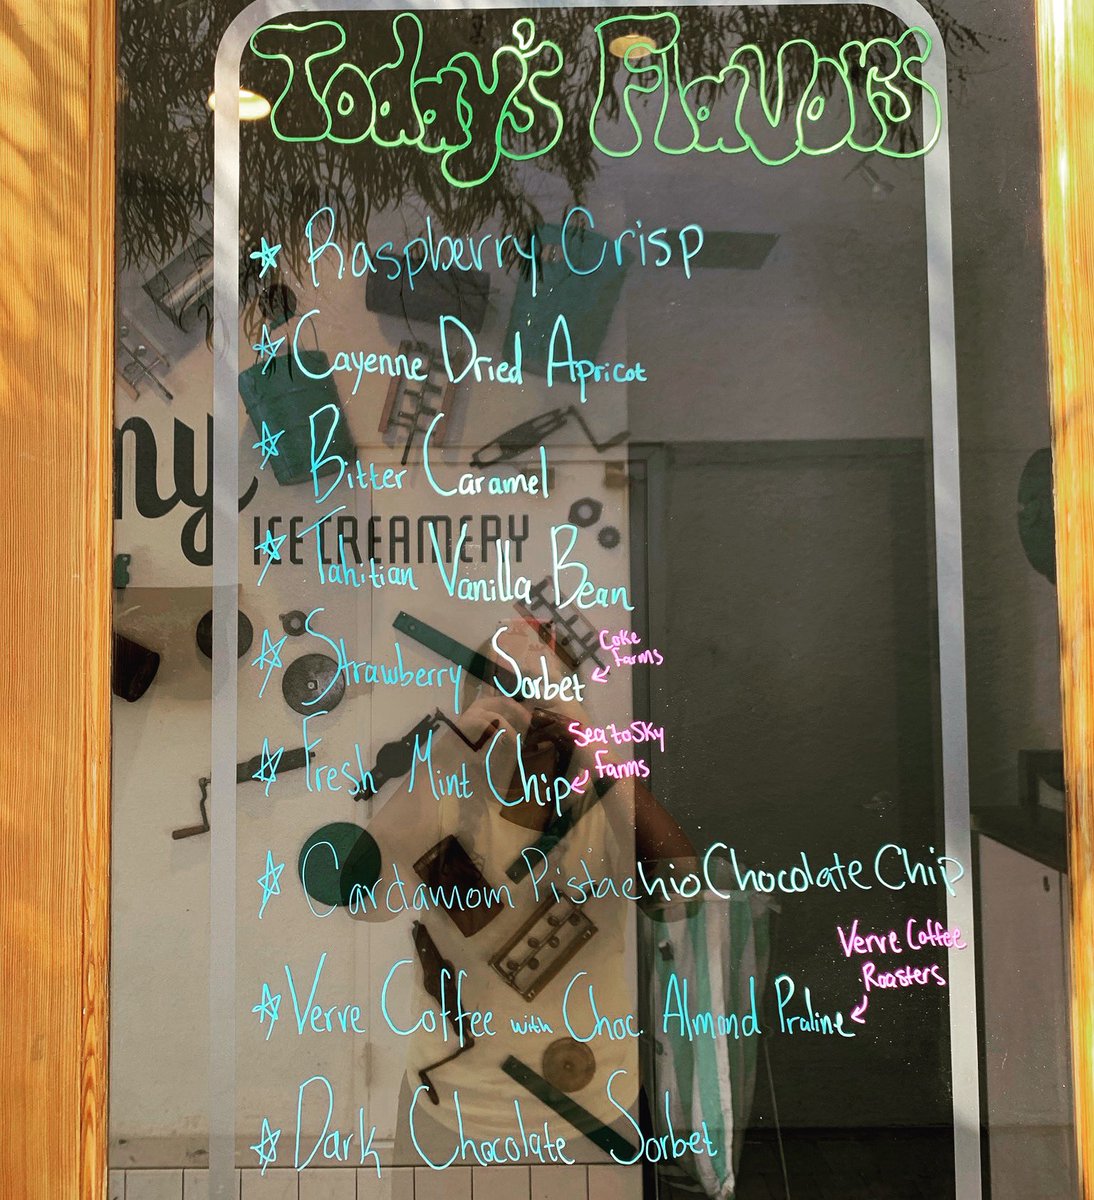 Today's Flavors
Raspberry Crisp
Cayenne Dried Apricot
Bitter Caramel
ny
ICE CREAMERY
Tahitian Vanilla Bean
Strawberry Sorbet
Coke
Farms
Fresh Mint Chip
Sea to Sky
Farms
Cardamom Pistachio Chocolate Chip
Verve Coffee with Choc. Almond Praline
Verve Coffee
Roasters
Dark Chocolate Sorbet